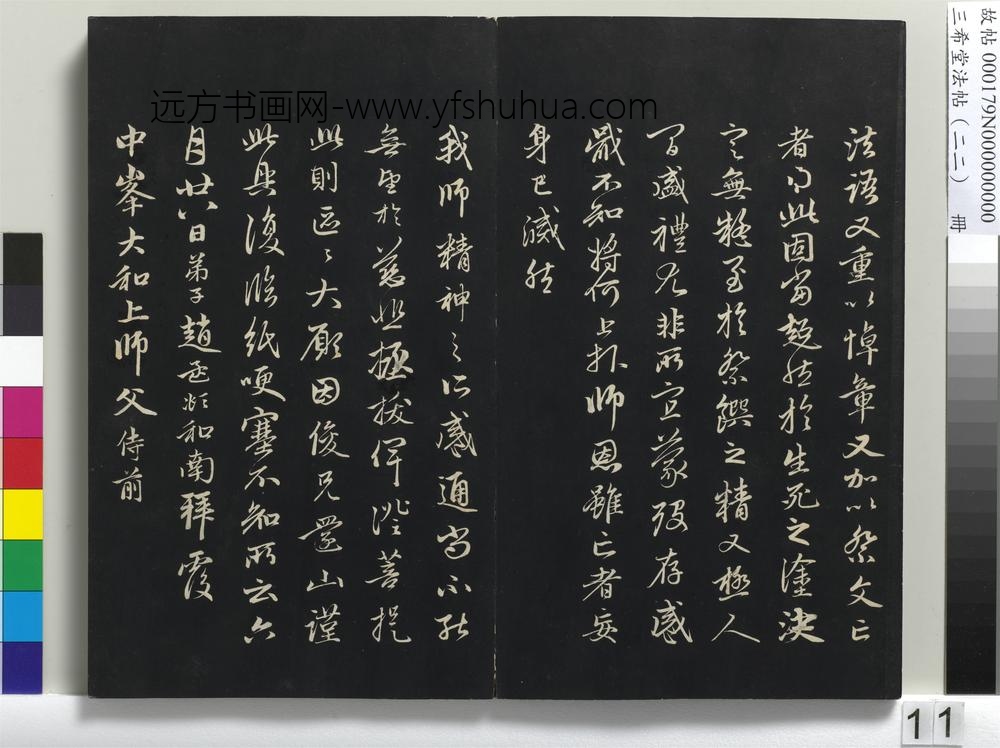 法语又重以悼章又加以祭文亡
者得此固当超然於生死之塗决
定無疑至於祭饌之精又極人
間盛禮尤非所宜蒙殁存感
戢不知将何上报師恩雖亡者妄
身已滅然
我師精神之所感通尚不能
無望於慈悲拯拔俾證菩提
此則區々大願因俊兄還山謹
此具復临紙哽塞不知所云六
月廿八日弟子趙孟頫和南拜覆
中峯大和上師父侍前
远方书画网-www.yfshuhua.com
故帖 000179N000000000
三希堂法帖（二二） 冊
11